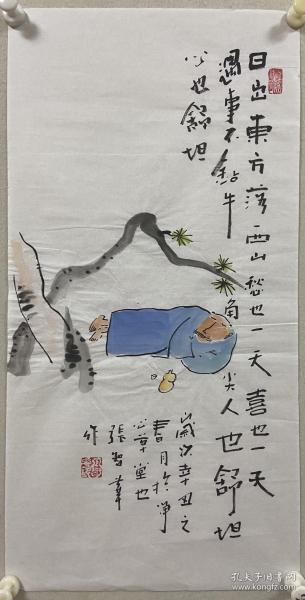 日出東方落西山愁也一天喜也一天
遇事不鉆牛角尖人也舒坦
心也舒坦
歲次辛丑之
春月於淨
心草堂也
張智華
作
孔夫子旧书网